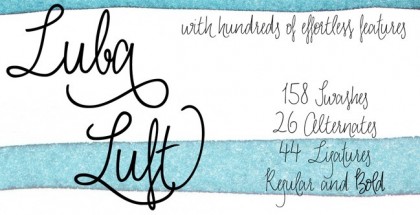 Luba
Luft
with hundreds of effortless features
158 Swashes
26 Alternates
44 Ligatures
Regular and Bold